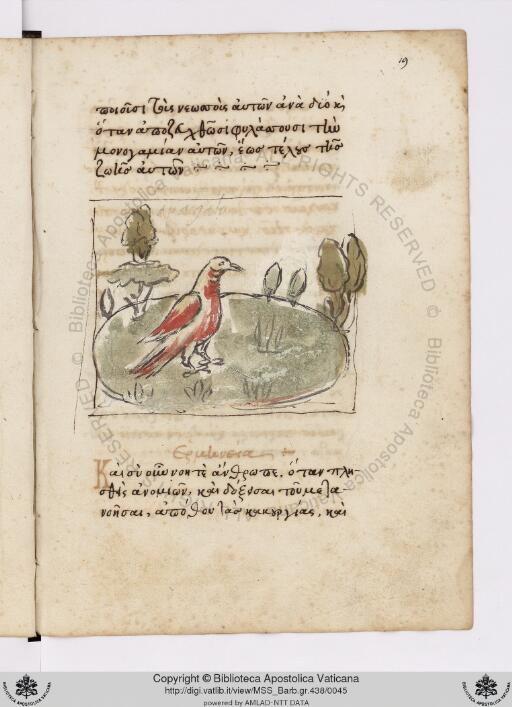 19
ποιοῦσι τοὺς νεωποὺς αὐτῶν ἀνὰ δύο κ
ὅταν ἀπο φυλάττουσι τὴν
μονογαμίαν αὐτῶν, ἕως τέλους τῆς
ζωῆς αὐτῶν
Ἑρμηνεία
Καὶ σὺ οὖν νοητὲ ἄνθρωπε, ὅταν πλη
σθῆς ἀνομιῶν, καὶ δόξει σαι τοῦ μετα
νοῆσαι, ἀπόθου τὰς κακουργίας, καὶ
© Biblioteca Apostolica Vaticana ALL RIGHTS RESERVED ©
Copyright © Biblioteca Apostolica Vaticana
http://digi.vatlib.it/view/MSS_Barb.gr.438/0045
powered by AMLAD-NTT DATA